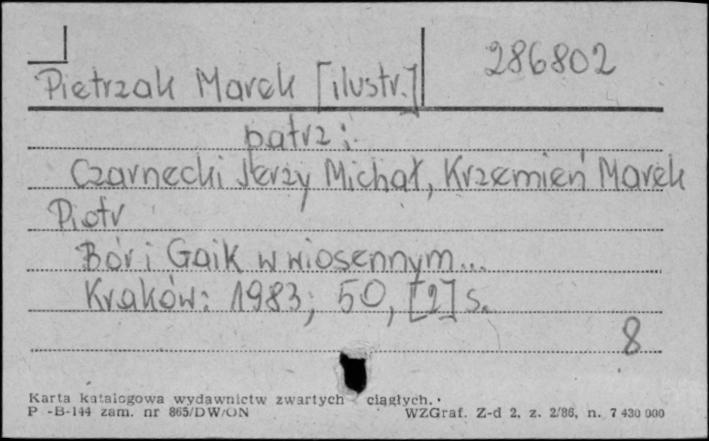 286802
Pietrzak Marek [ilustr.]
patrz:
Czarnecki Jerzy Michał, Krzemień Marek
Piotr
Bór i Gaik w wiosennym...
Kraków: 1983; 50, [2] s.
8
Karta katalogowa wydawnictw zwartych ciągłych.
P -B-144 zam. nr 865/DW/ON WZGraf. Z-d 2, z. 2/86, n. 7 430 000